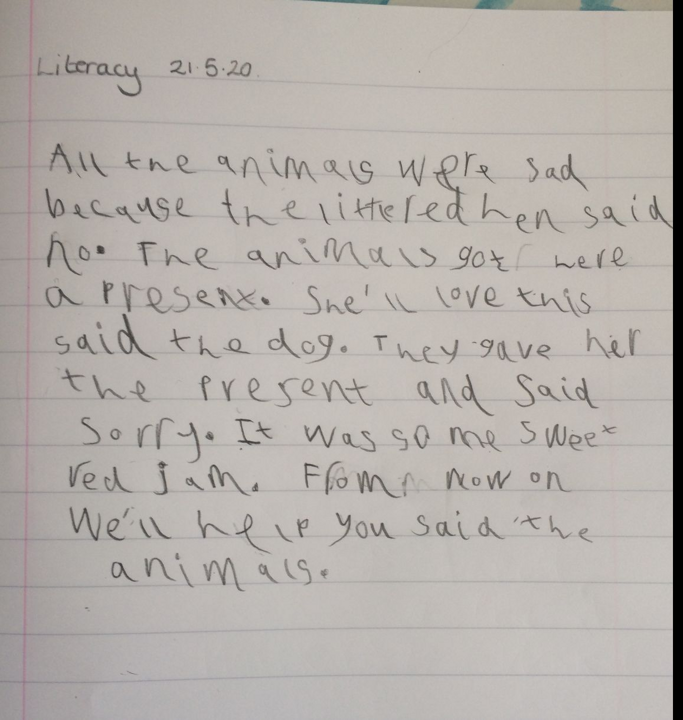 Literacy 21.5.20.
All the animals were sad
because the little red hen said
no. The animals got here
a present. She'll love this
said the dog. They gave her
the present and said
sorry. It was some sweet
red jam. From now on
we'll help you said the
animals.